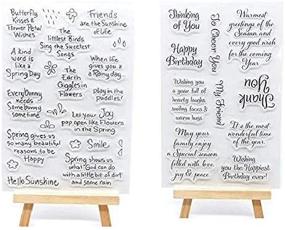 Butterfly
Kisses &
Flower Petal
Wishes
Friends
are the Sunshine
of life
The
littlest Birds
Sing the Sweetest
Songs
A kind
word is
like a
Spring Day
When life
gives you a
Rainy day...
The
Earth
Giggles in
Flowers
Play in the
puddles!
Every Bunny
needs
Some bunny
some times
Let your Joy
pop open like Flowers
in the Spring
Spring gives us
so many beautiful
reasons to be
Happy
Smile
Spring shows us
what God can do
with a little bit of dirt
and some rain
Hello Sunshine
Thinking
of You
Happy
Birthday
To Cheer You
Warmest
greetings of the
Season and
every good wish
for the coming
Year
Wishing you
a year full of
hearty laughs,
loving hugs &
joyous
surprises
My Friend
Thank
You
May your
family enjoy
a Special season
filled with love
joy & peace
It's the most
wonderful time
of the year.
Wishing
you the
Happiest
Birthday ever!